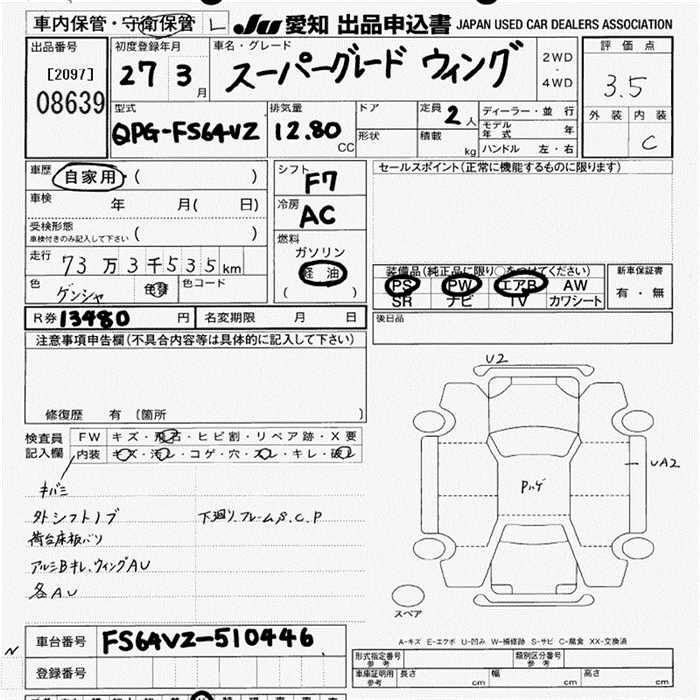 車内保管・守衛保管 L JU 愛知 出品申込書 JAPAN USED CAR DEALERS ASSOCIATION
出品番号 初度登録年月 車名・グレード 2WD・4WD 評価点
[2097] 27 3月 スーパーグレード ウィング 3.5
08639
型式 排気量 ドア 定員 2人 ディーラー・並行 外装 内装
QPG-FS64VZ 12.80 CC 形状 積載 kg モデル年式 年 C
ハンドル 左・右
車歴 自家用・( ) シフト F7 セールスポイント(正常に機能するものに限ります)
車検 年 月( 日) 冷房 AC
受検形態 車検付きのみ記入して下さい ( ) 燃料
ガソリン
走行 73万3千535km 軽油
( )
装備品(純正品に限り○をつけてください) 新車保証書
色 ゲンシャ 色替 色コード
PS PW エアB AW 有・無
SR ナビ TV カワシート
R券 13480 円 名変期限 月 日 後日品
注意事項申告欄(不具合内容等は具体的に記入して下さい)
修復歴 有 〔箇所 〕
U2
検査員記入欄 FW キズ・飛石・ヒビ割・リペア跡・X要
内装 キズ・汚レ・コゲ・穴・スレ・キレ・破レ
UA2
キバミ
Pハゲ
外シフトノブ 下廻リ、フレームS.C.P
荷台床板バリ
アルミBキレ、ウィングAU
各AU
スペア
A-キズ E-エクボ U-凹み W-補修跡 S-サビ C-腐食 XX-交換済
車台番号 FS64VZ-510446
登録番号
形式指定番号 参考 類別区分番号 参考
車庫証明用 参考 長さ cm 幅 cm 高さ cm